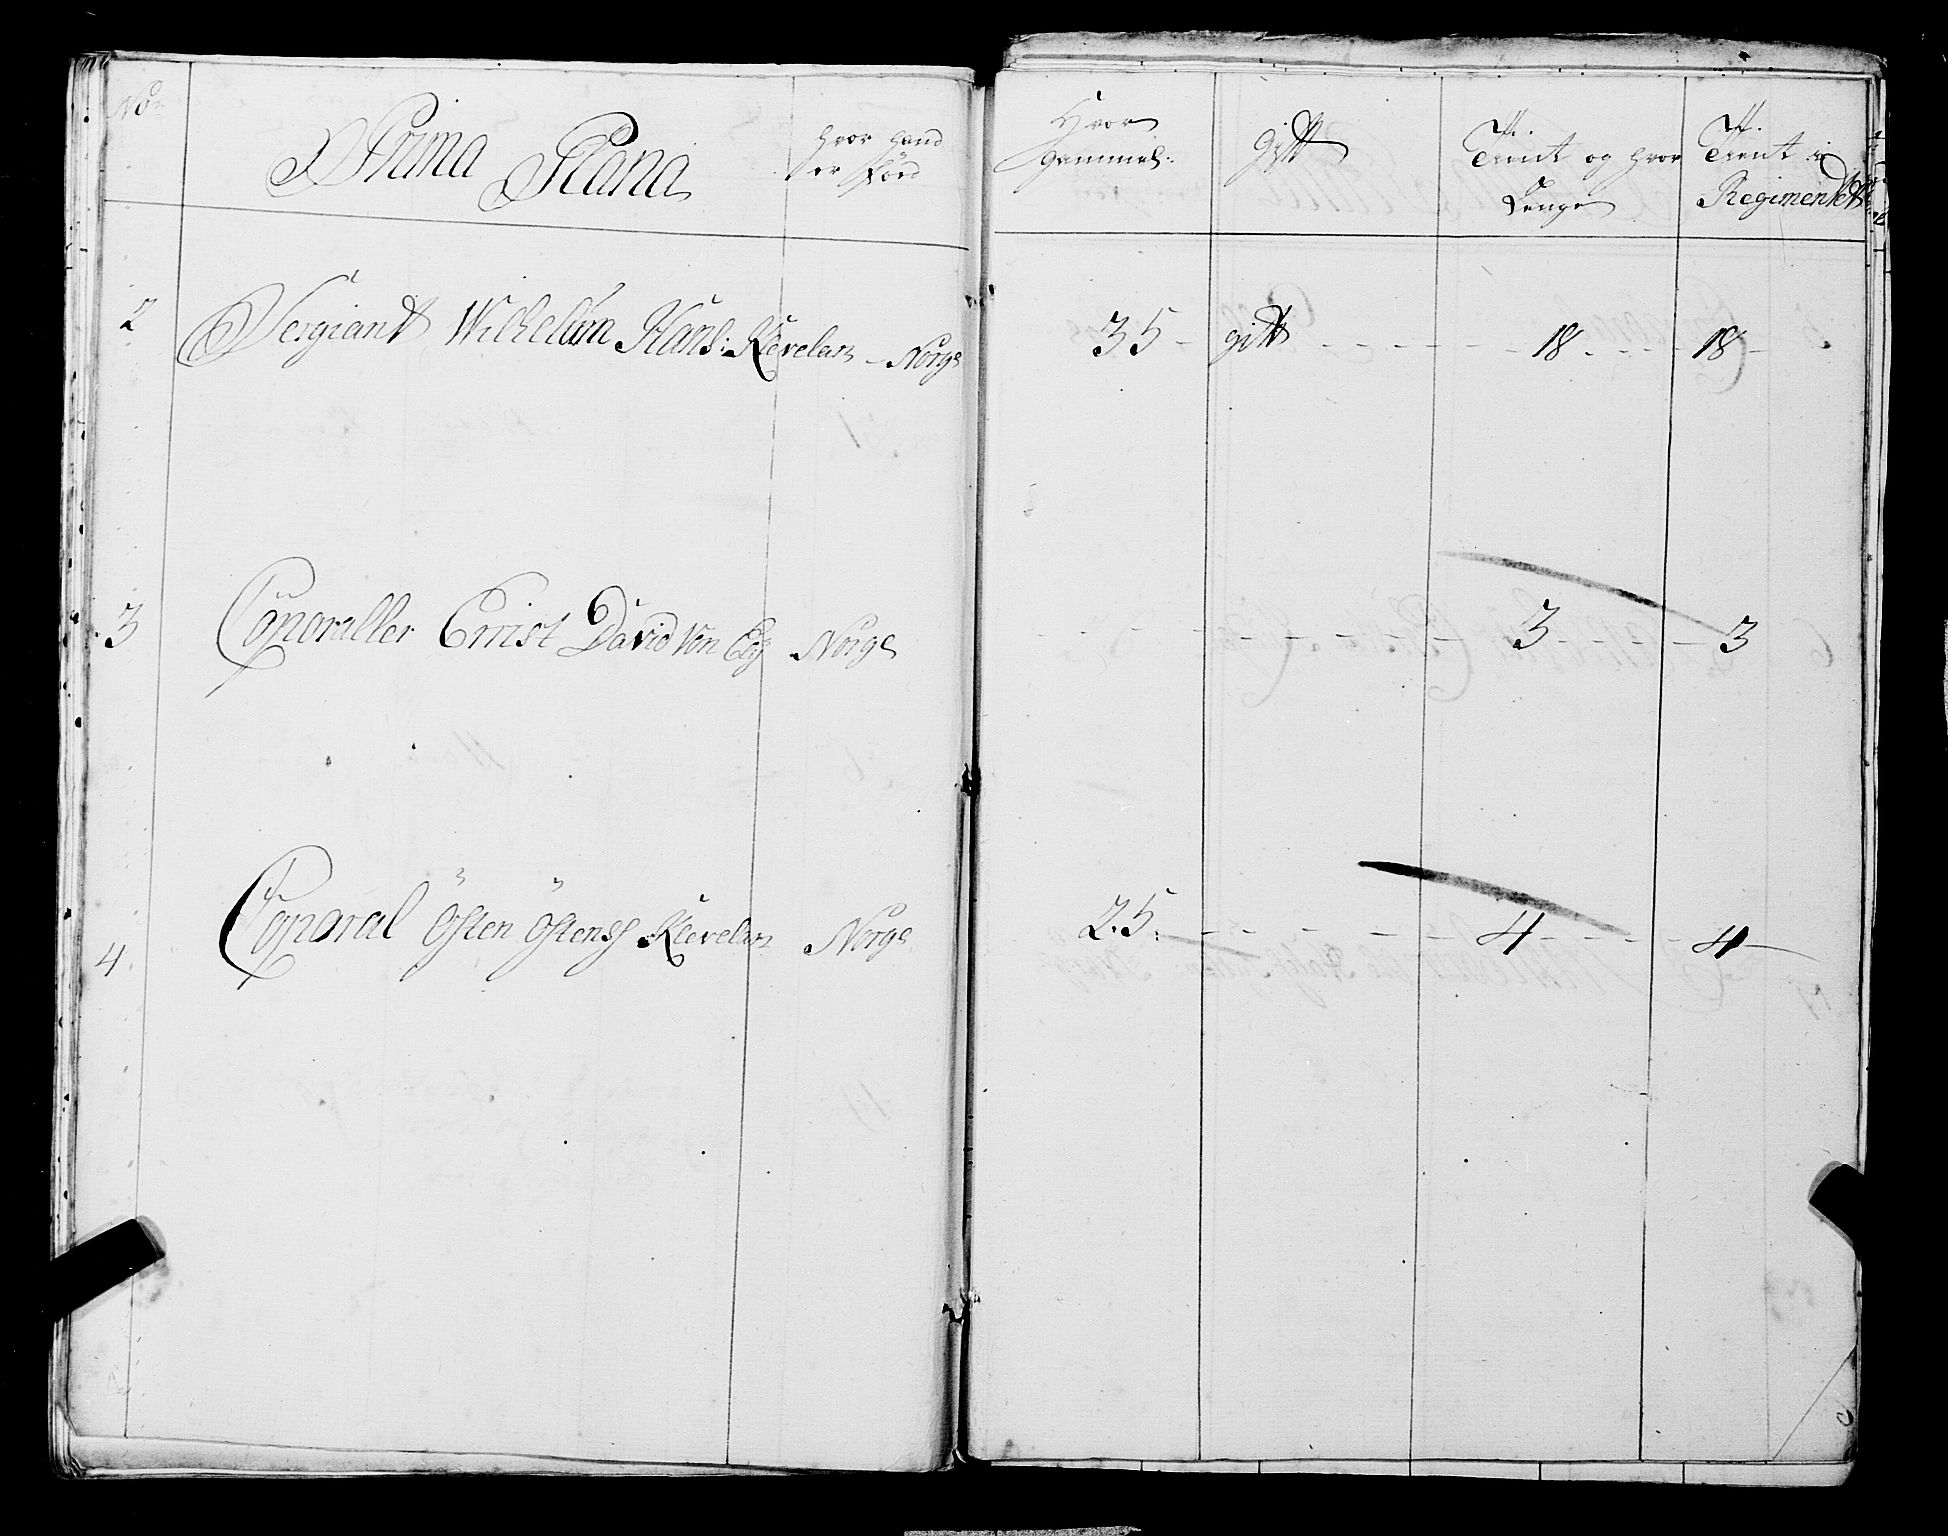 No:
Prima Plana
hvor hand
er Förd
Hvor
gammel:
gift
Tient og hvor
Lenge
Tient i
Regimentet
2 Sergiant Wilhelum Hans: Klevelan - Norge 35 - gift 18 18
3 Coporaller Ernist David Von Norge 3 3
4 Coporal östen östensß Klevelan Norge 25: 4 4